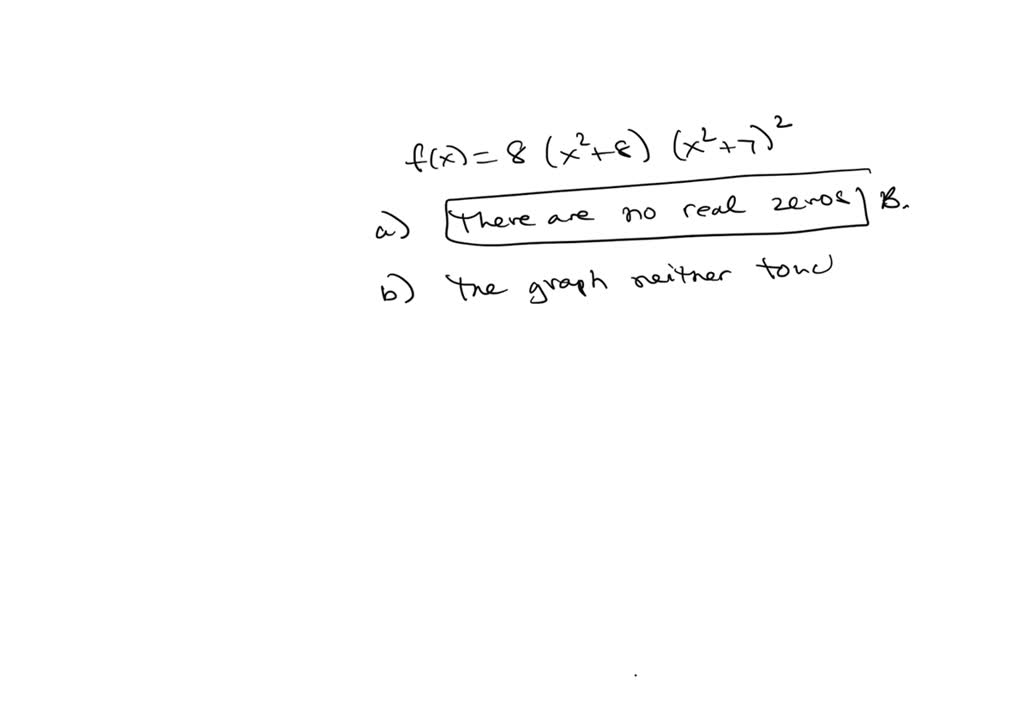 f(x) = 8 (x²+8) (x²+7)²
a) There are no real zeros B.
b) The graph neither touc